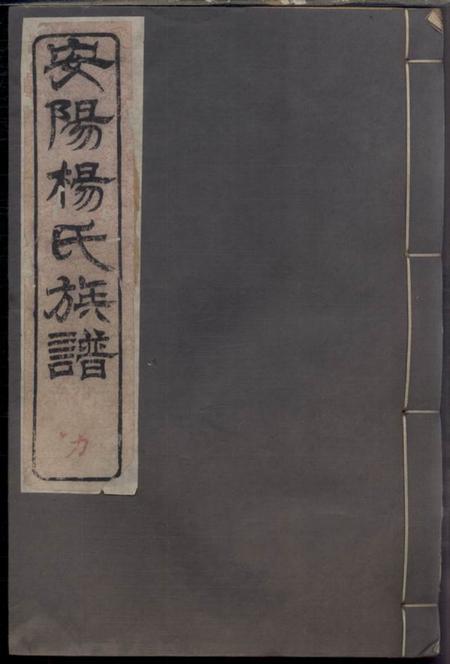 安陽楊氏族譜